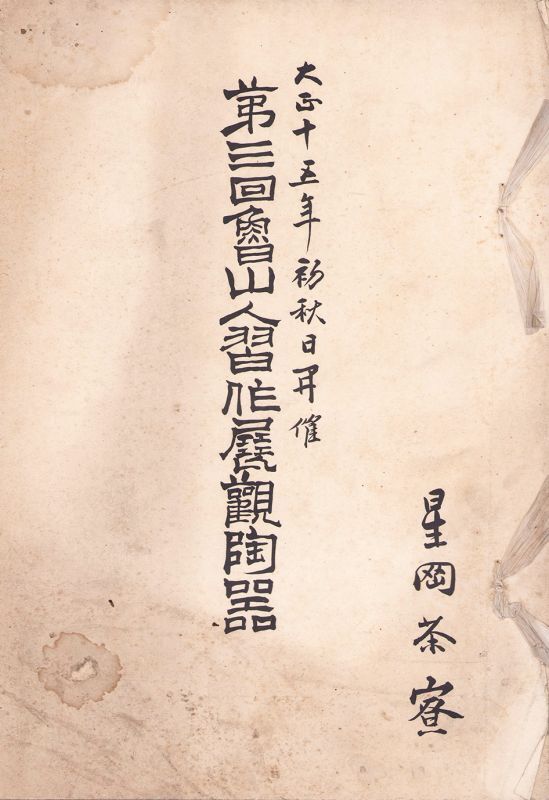 大正十五年初秋日開催
第三回魯山人習作展觀陶器
星岡茶寮